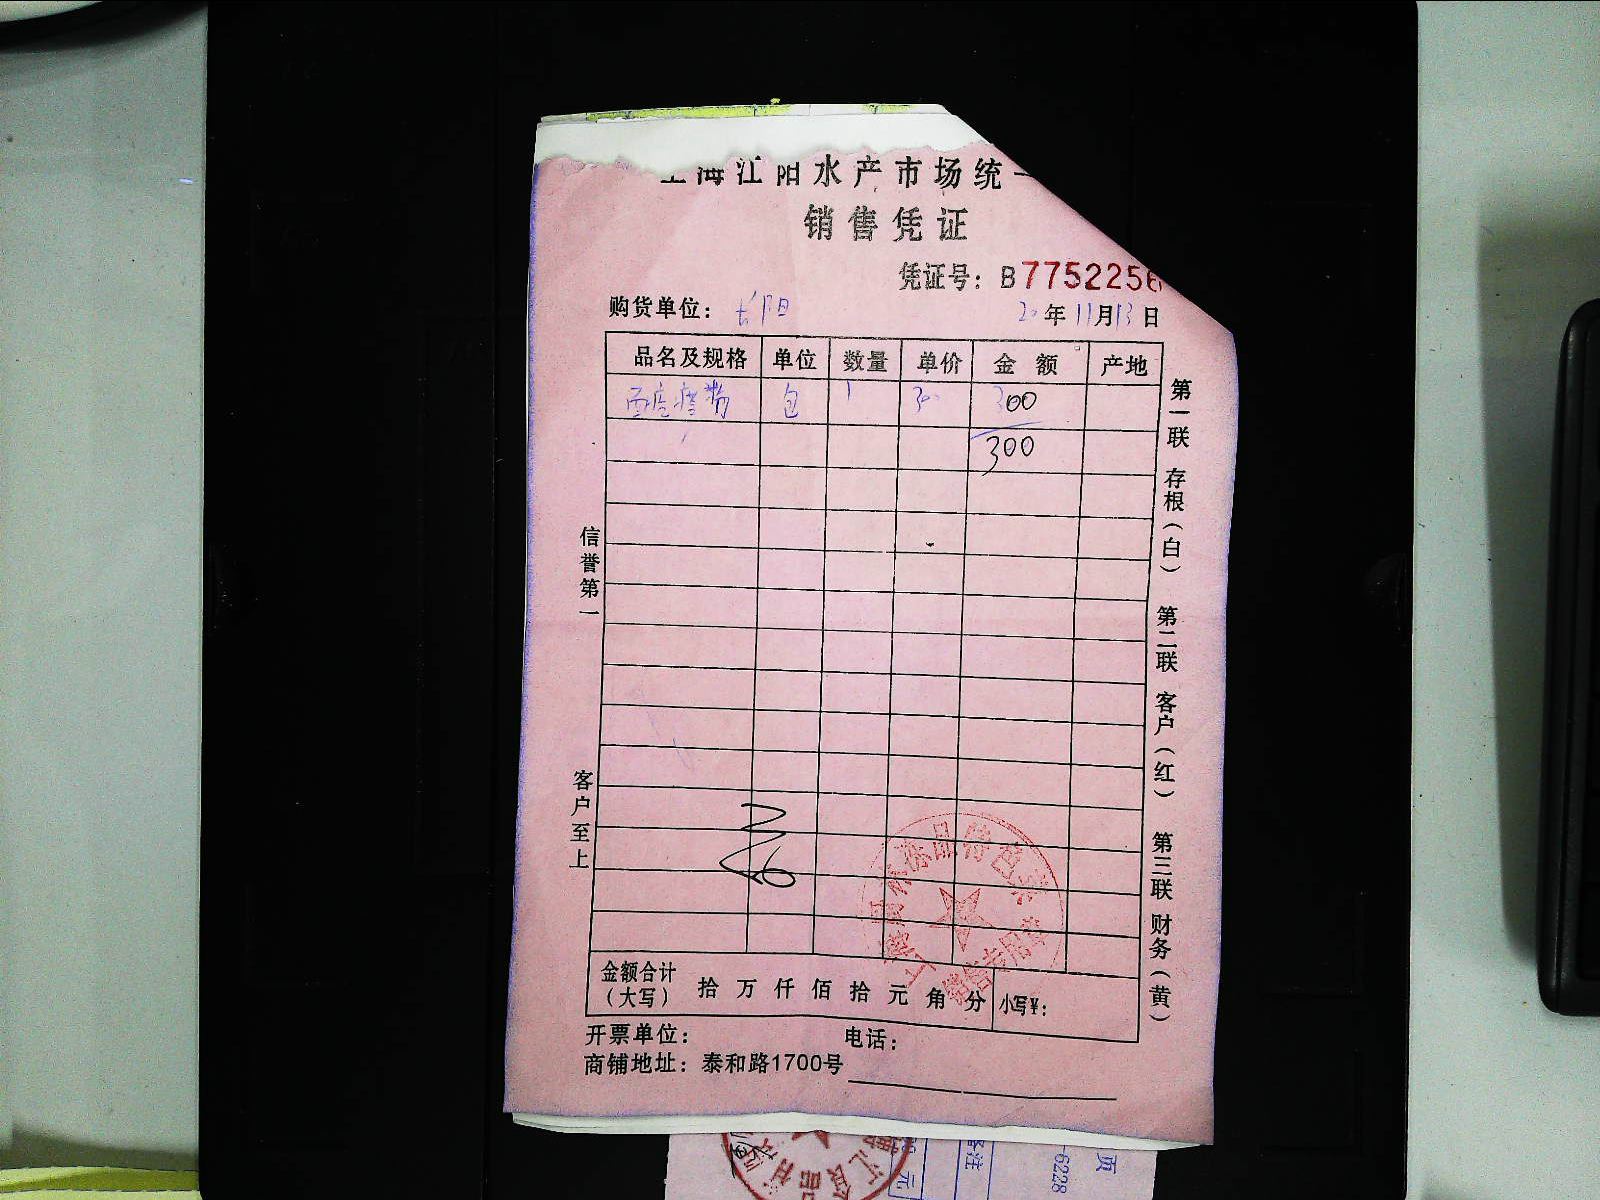 上海江阳水产市场统一
销售凭证
凭证号：B7752256
购货单位：长阳 20年11月13日
品名及规格 单位 数量 单价 金额 产地
包 1 300 300
300
信誉第一
客户至上
第一联 存根（白） 第二联 客户（红） 第三联 财务（黄）
销售专用章
金额合计（大写） 拾 万 仟 佰 拾 元 角 分 小写¥：
开票单位： 电话：
商铺地址：泰和路1700号
元
备注
6228
页